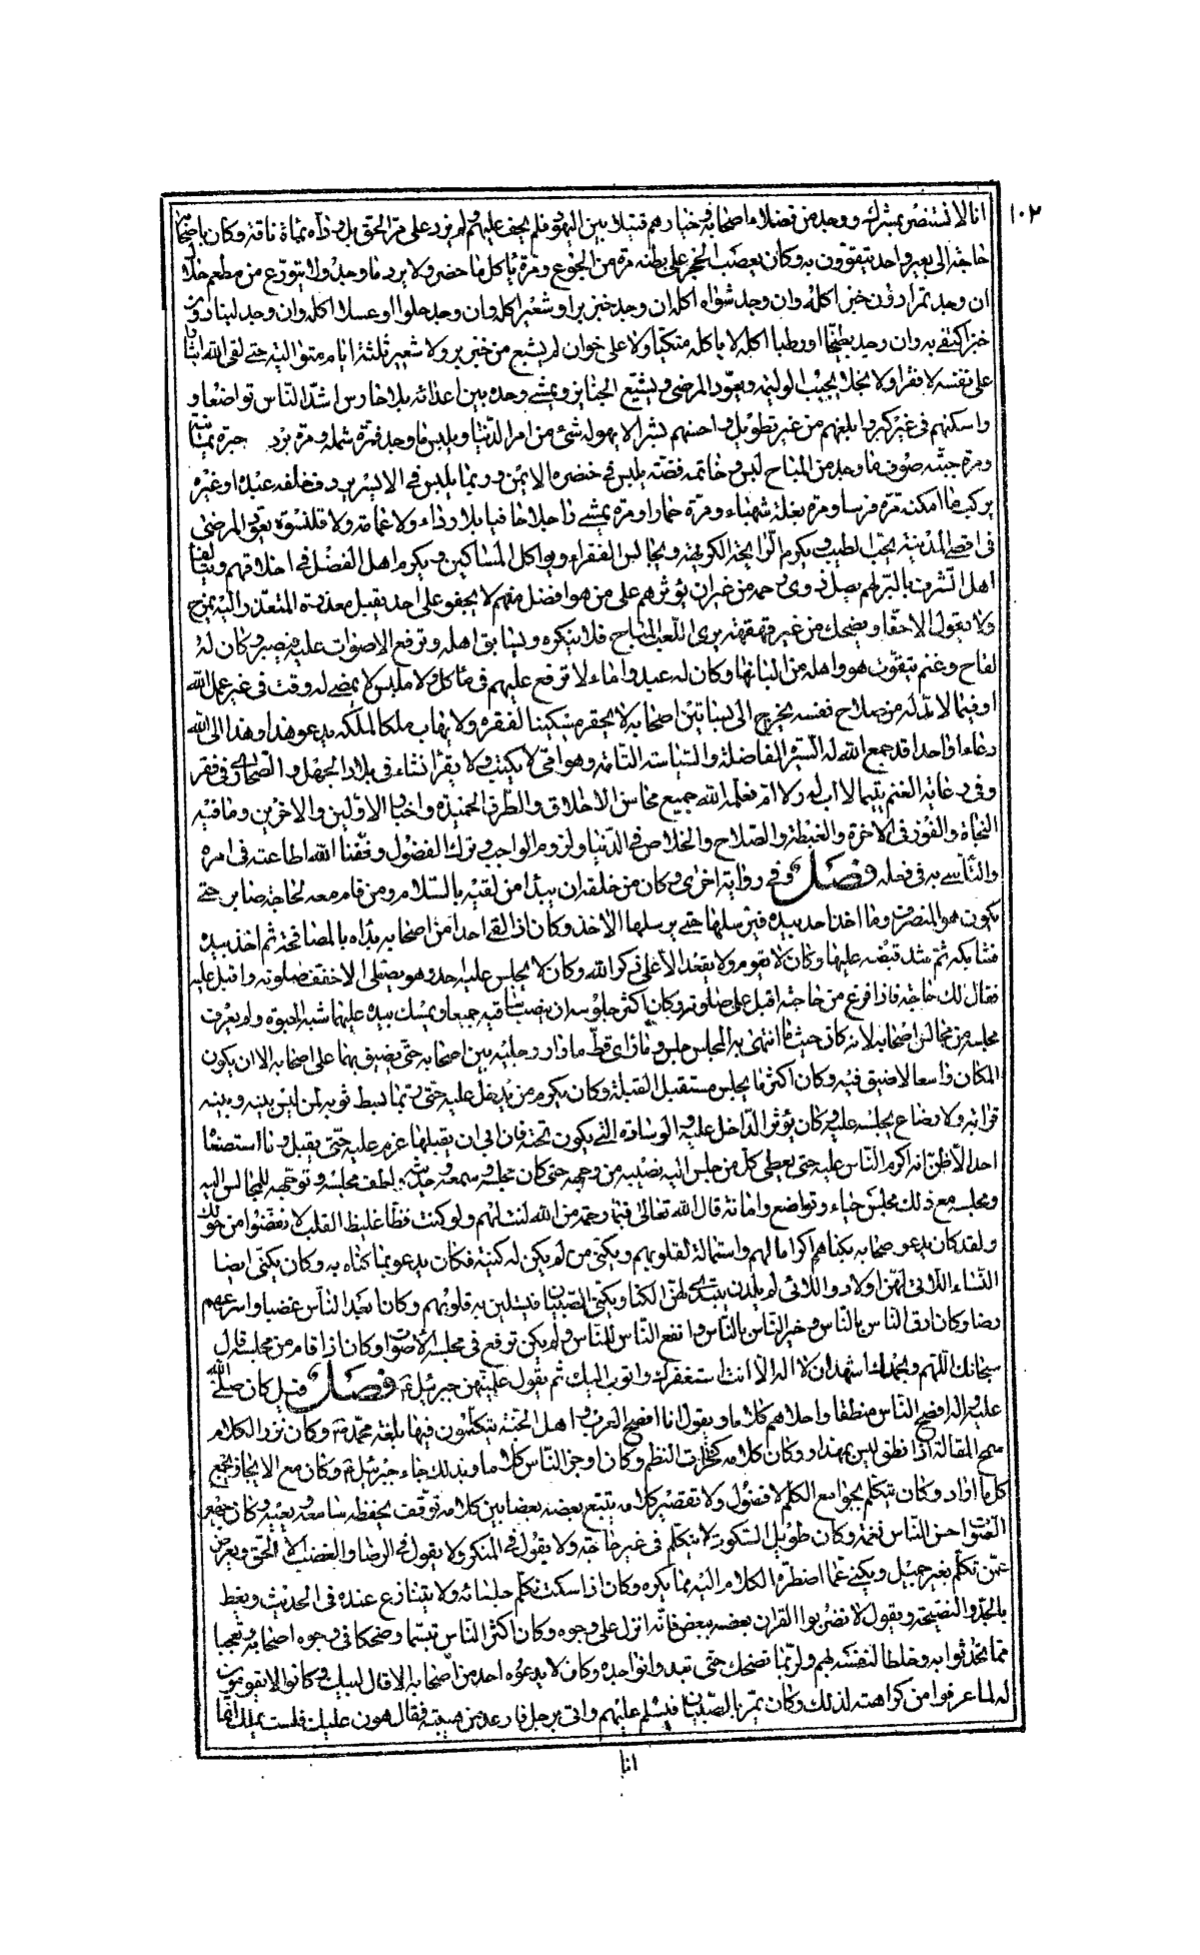 ١٠٢
انا لا نستنصر بمشرك ووجد من فضلاء اصحابه وخيارهم قتيلا بين اليهود فلم يحف عليهم ولم يزد على مر الحق بل وداه بمائة ناقة وكان باصحابه
حاجة الى بعير واحد يتقوون به وكان يعصب الحجر على بطنه مرة من الجوع ومرة ياكل ما حضر ولا يرد ما وجد ولا يتورع من مطعم حلال
ان وجد تمرا دون خبز اكله وان وجد شواه اكله ان وجد خبز بر او شعير اكله وان وجد حلوا او عسلا اكله وان وجد لبنا دون
خبز اكتفى به وان وجد بطيخا او رطبا اكله لا ياكله متكيا ولا على خوان لم يشبع من خبز بر ولا شعير ثلثة ايام متوالية حتى لقى الله ايثارا
على نفسه لا فقرا ولا بخلا يجيب الوليمة ويعود المرضى ويشيع الجنايز ويمشى وحده بين اعدائه بلا حارس اشد الناس تواضعا و
واسكنهم فى غير كبر وابلغهم من غير تطويل واحسنهم بشرا لا يهوله شئ من امر الدنيا ويلبس ما وجد فمرة شمله ومرة برد حبرة يمانيا
ومرة جبته صوف ما وجد من المباح لبس وخاتمه فضته يلبس فى خنصره الايمن وربما يلبس فى الايسر يردف خلفه عبده او غيره
يركب ما امكنه مرة فرسا ومرة بغلة شهباء ومرة حمارا ومرة يمشى راجلا حافيا بلا رداء ولا عمامة ولا قلنسوة يعود المرضى
فى اقصى المدينة يحب الطيب ويكره الرايحة الكريهة ويجالس الفقراء ويواكل المساكين ويكرم اهل الفضل فى اخلاقهم ويتالف
اهل الشرف بالبر لهم يصل ذوى رحمه من غير ان يؤثرهم على من هو افضل منهم لا يجفو على احد يقبل معذرة المتعذر اليه يمزح
ولا يقول الا حقا ويضحك من غير قهقهة يرى اللعب المباح فلا ينكره ويسابق اهله وترفع الاصوات عليه فيصبر وكان له
لقاح وغنم يتقوت هو واهله من البانها وكان له عبيد واماء لا ترفع عليهم فى ماكل ولا ملبس لا يمضى له وقت فى غير عمل الله
او فيما لا بد له من صلاح نفسه يخرج الى بساتين اصحابه لا يحقر مسكينا لفقره ولا يهاب ملكا لملكه يدعو هذا وهذا الى الله
دعاء واحدا قد جمع الله له السيرة الفاضلة والسياسة التامة وهو امى لا يكتب ولا يقرأ نشاء فى بلاد الجهل والصحارى فى فقر
وفى رعاية الغنم يتيما لا اب له ولا ام فعلمه الله جميع محاسن الاخلاق والطرق الحميدة واخبار الاولين والاخرين وما فيه
النجاة والفوز فى الاخرة والغبطة والصلاح والخلاص فى الدنيا ولزوم الواجب وترك الفضول وفقنا الله اطاعته فى امره
والتأسى به فى فعله فصل وفى رواية اخرى وكان من خلقه ان يبدأ من لقيه بالسلام ومن قام معه لحاجة صابر حتى
يكون هو المنصرف وما اخذ احد بيده فيرسلها حتى يرسلها الاخذ وكان اذا لقى احدا من اصحابه بدأه بالمصافحة ثم اخذ بيده
فشابكه ثم شد قبضه عليها وكان لا يقوم ولا يقعد الا على ذكر الله وكان لا يجلس عليه احد وهو يصلى الا خفف صلوته واقبل عليه
فقال لك حاجة فاذا فرغ من حاجته اقبل على صلوته وكان اكثر جلوسه ان ينصب ساقيه جميعا ويمسك بيده عليهما شبه الحبوة ولم يعرف
مجلسه من مجالس اصحابه لانه كان حيث ما انتهى به المجلس جلس وما راى قط مادا رجليه بين اصحابه حتى يضيق بهما على اصحابه الا ان يكون
المكان واسعا لا ضيق فيه وكان اكثر ما يجلس مستقبل القبلة وكان يكرم من يدخل عليه حتى ربما بسط ثوبه لمن ليس بينه وبينه
قرابة ولا رضاع يجلسه عليه وكان يؤثر الداخل عليه الوسادة التى يكون تحته فان ابى ان يقبلها عزم عليه حتى يقبل وما استصغا
احد الا ظن انه اكرم الناس عليه حتى يعطى كل من جلس اليه نصيبه من وجهه حتى كان مجلسه وسمعه وحديثه لطف مجلسه وتوجهه للمجالس اليه
ومجلسه مع ذلك مجلس حياء وتواضع وامانة قال الله تعالى فبما رحمة من الله لنت لهم ولو كنت فظا غليظ القلب لانفضوا من حولك
ولقد كان يدعو اصحابه بكناهم اكراما لهم واستمالة لقلوبهم ويكنى من لم يكن له كنية فكان يدعو بما كناه به وكان يكنى ايضا
النساء اللاتى لهن اولاد واللاتى لم يلدن يبتدى لهن الكنا ويكنى الصبيان فيستلين به قلوبهم وكان ابعد الناس غضبا واسرعهم
رضا وكان ارق الناس بالناس وخير الناس بالناس وانفع الناس للناس ولم يكن ترفع فى مجلسه الاصوات وكان اذا قام من مجلسه قال
سبحانك اللهم وبحمدك اشهد ان لا اله الا انت استغفرك واتوب اليك ثم يقول علمنيهن جبرئيل فصل قيل كان صلى الله
عليه واله افصح الناس منطقا واحلاهم كلاما ويقول انا افصح العرب واهل الجنة يتكلمون فيها بلغة محمد وكان نزر الكلام
سمح المقالة اذا نطق ليس بمهذار وكان كلامه كخرزات النظم وكان اوجز الناس كلاما وبذلك جاء جبرئيل وكان مع الايجاز يجمع
كل ما اراد وكان يتكلم بجوامع الكلم لا فضول ولا تقصير كلامه يتبع بعضه بعضا بين كلامه توقف يحفظه سامعه ويعيه وكان جهير
الصوت احسن الناس نغمة وكان طويل السكوت لا يتكلم فى غير حاجة ولا يقول فى المنكر ولا يقول فى الرضا والغضب الا الحق ويعرض
عمن تكلم بغير جميل ويكنى عما اضطره الكلام اليه مما يكره وكان اذا سكت تكلم جلسائه ولا يتنازع عنده فى الحديث ويعظ
بالجد والنصيحة ويقول لا تضربوا القران بعضه ببعض فانه انزل على وجوه وكان اكثر الناس تبسما وضحكا فى وجوه اصحابه وتعجبا
مما يحدثوا به وخلطا لنفسه بهم ولربما تضحك حتى تبدو انواجده وكان لا يدعوه احد من اصحابه الا قال لبيك وكانوا لا يقومون
له لما عرفوا من كراهته لذلك وكان يمر بالصبيان فيسلم عليهم واتى برجل فارعد من هيبته فقال هون عليك فلست بملك انما
انا